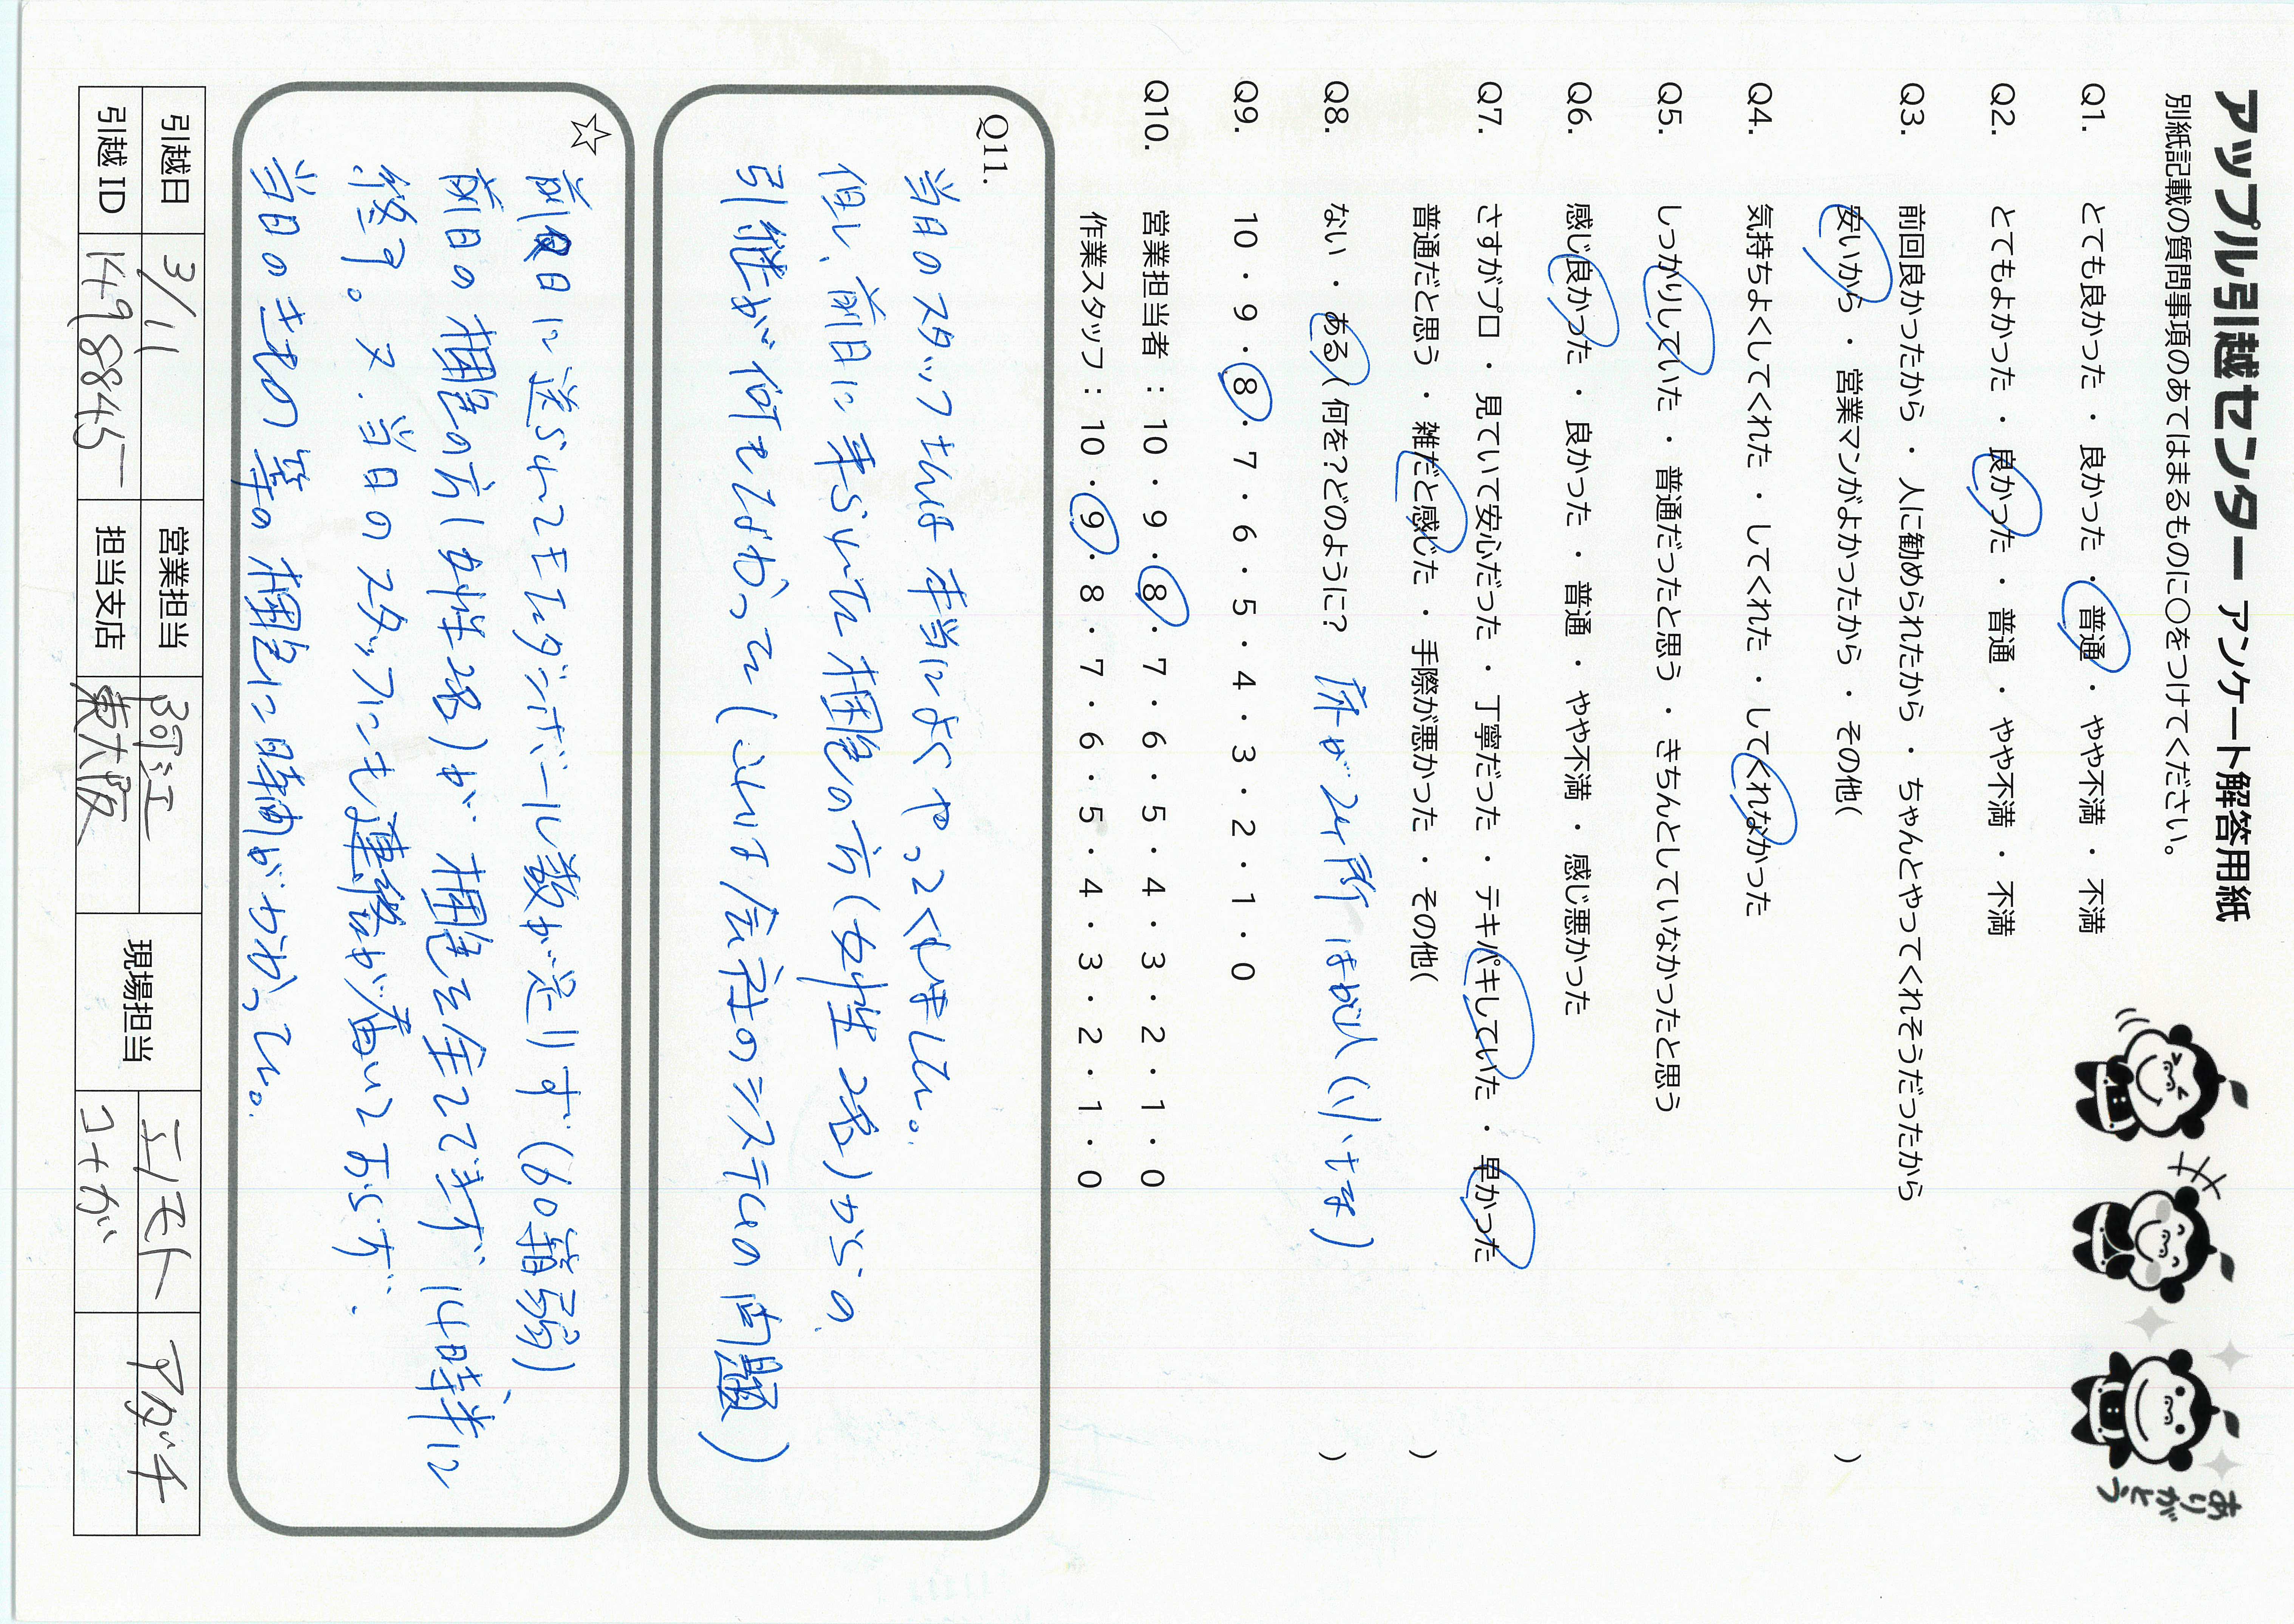 アップル引越センター アンケート解答用紙
別紙記載の質問事項のあてはまるものに○をつけてください。
Q1. とても良かった ・ 良かった ・ 普通 ・ やや不満 ・ 不満
Q2. とてもよかった ・ 良かった ・ 普通 ・ やや不満 ・ 不満
Q3. 前回良かったから ・ 人に勧められたから ・ ちゃんとやってくれそうだったから
安いから ・ 営業マンがよかったから ・ その他( )
Q4. 気持ちよくしてくれた ・ してくれた ・ してくれなかった
Q5. しっかりしていた ・ 普通だったと思う ・ きちんとしていなかったと思う
Q6. 感じ良かった ・ 良かった ・ 普通 ・ やや不満 ・ 感じ悪かった
Q7. さすがプロ ・ 見ていて安心だった ・ 丁寧だった ・ テキパキしていた ・ 早かった
普通だと思う ・ 雑だと感じた ・ 手際が悪かった ・ その他( )
Q8. ない ・ ある( 何を?どのように? 床が2ヶ所 はがれ(小さな) )
Q9. 10 ・ 9 ・ 8 ・ 7 ・ 6 ・ 5 ・ 4 ・ 3 ・ 2 ・ 1 ・ 0
Q10. 営業担当者 : 10 ・ 9 ・ 8 ・ 7 ・ 6 ・ 5 ・ 4 ・ 3 ・ 2 ・ 1 ・ 0
作業スタッフ : 10 ・ 9 ・ 8 ・ 7 ・ 6 ・ 5 ・ 4 ・ 3 ・ 2 ・ 1 ・ 0
Q11.
当日のスタッフさんは本当によくやってくれました。
但し、前日に来られた梱包の方(女性2名)からの
引継が何もなかった(これは会社のシステムの問題)
☆
前日に送られてきたダンボール数が足りず(60箱弱)
前日の梱包の方(女性2名)が 梱包を全てせず 14時半に
終了。又、当日のスタッフにも連絡が着いておらず、
当日のきもの等の梱包に時間がかかった。
引越日 3/11 営業担当 阿江 現場担当 ミノモト アダチ
引越 ID 1498845 担当支店 東大阪 コナガ
ありがとう